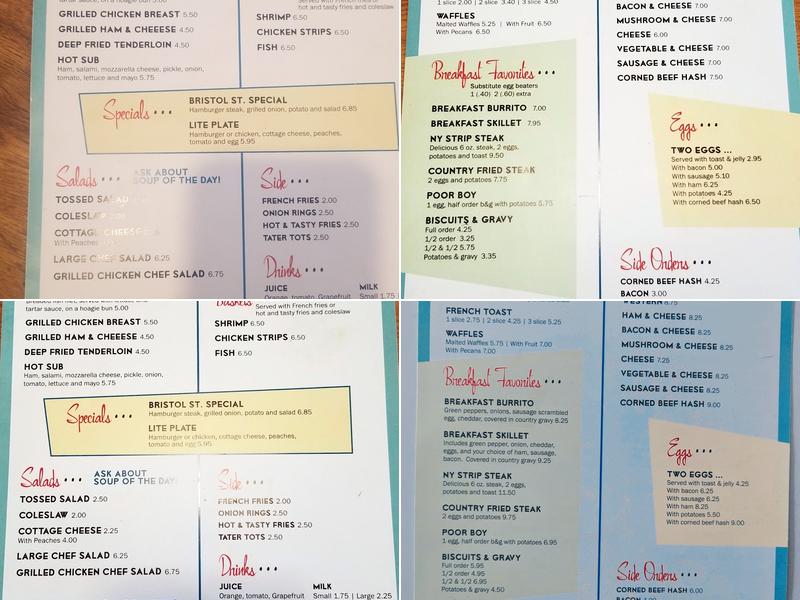 tartar sauce, on a hoagie bun 5.00
GRILLED CHICKEN BREAST 5.50
GRILLED HAM & CHEESE 4.50
DEEP FRIED TENDERLOIN 4.50
HOT SUB
Ham, salami, mozzarella cheese, pickle, onion,
tomato, lettuce and mayo 5.75
Served with French fries or
hot and tasty fries and coleslaw
SHRIMP 6.50
CHICKEN STRIPS 6.50
FISH 6.50
Specials •••
BRISTOL ST. SPECIAL
Hamburger steak, grilled onion, potato and salad 6.85
LITE PLATE
Hamburger or chicken, cottage cheese, peaches,
tomato and egg 5.95
Salads •••
ASK ABOUT
SOUP OF THE DAY!
TOSSED SALAD
COLESLAW 2.00
COTTAGE CHEESE
With Peaches
LARGE CHEF SALAD 6.25
GRILLED CHICKEN CHEF SALAD 6.75
Side •••
FRENCH FRIES 2.00
ONION RINGS 2.50
HOT & TASTY FRIES 2.50
TATER TOTS 2.50
Drinks •••
JUICE
Orange, tomato, Grapefruit
MILK
Small 1.75
1 slice 2.00 | 2 slice 3.40 | 3 slice 4.50
WAFFLES
Malted Waffles 5.25 | With Fruit 6.50
With Pecans 6.50
Breakfast Favorites •••
Substitute egg beaters
1 (.40) 2 (.60) extra
BREAKFAST BURRITO 7.00
BREAKFAST SKILLET 7.95
NY STRIP STEAK
Delicious 6 oz. steak, 2 eggs,
potatoes and toast 9.50
COUNTRY FRIED STEAK
2 eggs and potatoes 7.75
POOR BOY
1 egg, half order b&g with potatoes 5.75
BISCUITS & GRAVY
Full order 4.25
1/2 order 3.25
1/2 & 1/2 5.75
Potatoes & gravy 3.35
BACON & CHEESE 7.00
MUSHROOM & CHEESE 7.00
CHEESE 6.00
VEGETABLE & CHEESE 7.00
SAUSAGE & CHEESE 7.00
CORNED BEEF HASH 7.50
Eggs •••
TWO EGGS ...
Served with toast & jelly 2.95
With bacon 5.00
With sausage 5.10
With ham 6.25
With potatoes 4.25
With corned beef hash 6.50
Side Orders •••
CORNED BEEF HASH 4.25
BACON 3.00
tartar sauce, on a hoagie bun 5.00
GRILLED CHICKEN BREAST 5.50
GRILLED HAM & CHEEESE 4.50
DEEP FRIED TENDERLOIN 4.50
HOT SUB
Ham, salami, mozzarella cheese, pickle, onion,
tomato, lettuce and mayo 5.75
Baskets
Served with French fries or
hot and tasty fries and coleslaw
SHRIMP 6.50
CHICKEN STRIPS 6.50
FISH 6.50
Specials •••
BRISTOL ST. SPECIAL
Hamburger steak, grilled onion, potato and salad 6.85
LITE PLATE
Hamburger or chicken, cottage cheese, peaches,
tomato and egg 5.95
Salads •••
ASK ABOUT
SOUP OF THE DAY!
TOSSED SALAD 2.50
COLESLAW 2.00
COTTAGE CHEESE 2.25
With Peaches 4.00
LARGE CHEF SALAD 6.25
GRILLED CHICKEN CHEF SALAD 6.75
Side •••
FRENCH FRIES 2.00
ONION RINGS 2.50
HOT & TASTY FRIES 2.50
TATER TOTS 2.50
Drinks •••
JUICE
Orange, tomato, Grapefruit
MILK
Small 1.75 | Large 2.25
FRENCH TOAST
1 slice 2.75 | 2 slice 4.25 | 3 slice 5.25
WAFFLES
Malted Waffles 5.75 | With Fruit 7.00
With Pecans 7.00
Breakfast Favorites •••
BREAKFAST BURRITO
Green peppers, onions, sausage scrambled
egg, cheddar, covered in country gravy 8.25
BREAKFAST SKILLET
Includes green pepper, onion, cheddar,
eggs, and your choice of ham, sausage,
bacon. Covered in country gravy 9.25
NY STRIP STEAK
Delicious 6 oz. steak, 2 eggs,
potatoes and toast 11.50
COUNTRY FRIED STEAK
2 eggs and potatoes 9.75
POOR BOY
1 egg, half order b&g with potatoes 6.95
BISCUITS & GRAVY
Full order 5.95
1/2 order 4.95
1/2 & 1/2 6.95
Potatoes & gravy 4.50
WESTERN 8.75
HAM & CHEESE 8.25
BACON & CHEESE 8.25
MUSHROOM & CHEESE 8.25
CHEESE 7.25
VEGETABLE & CHEESE 8.25
SAUSAGE & CHEESE 8.25
CORNED BEEF HASH 9.00
Eggs •••
TWO EGGS ...
Served with toast & jelly 4.25
With bacon 6.25
With sausage 6.25
With ham 8.25
With potatoes 5.50
With corned beef hash 9.00
Side Orders •••
CORNED BEEF HASH 6.00